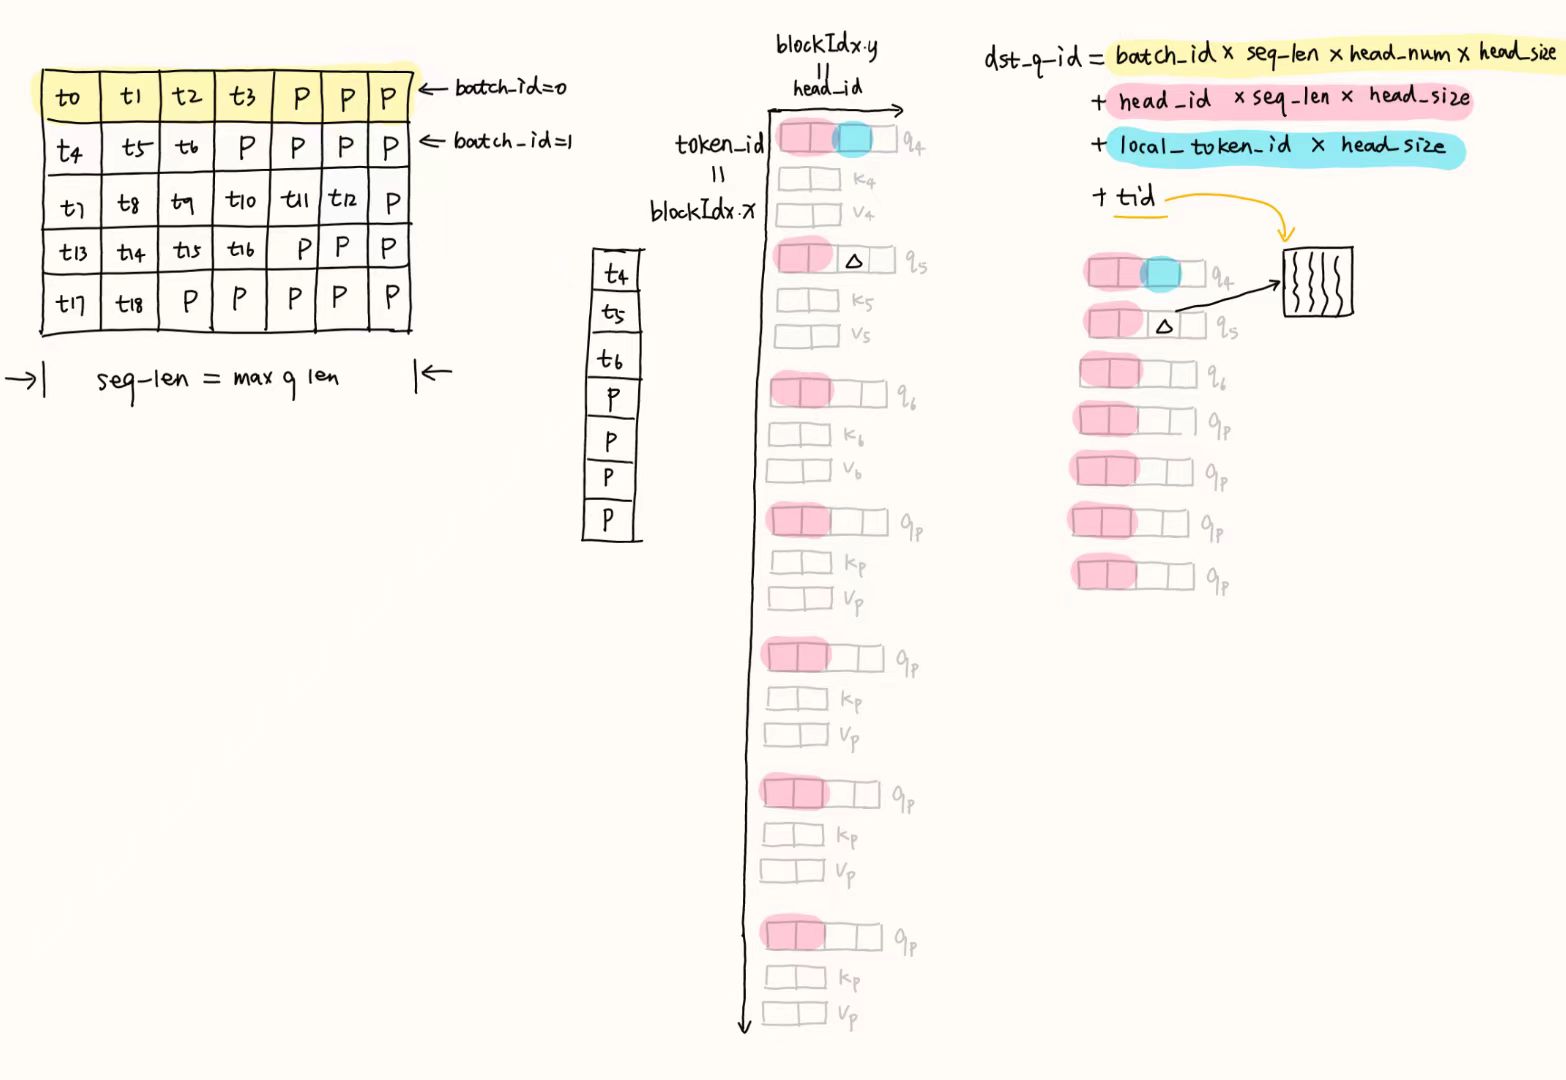 t0 t1 t2 t3 P P P ← batch_id=0
t4 t5 t6 P P P P ← batch_id=1
t7 t8 t9 t10 t11 t12 P
t13 t14 t15 t16 P P P
t17 t18 P P P P P
seq-len = max q len
t4
t5
t6
P
P
P
P
blockIdx.y
=
head_id
token_id
=
blockIdx.x
q4
k4
v4
Δ q5
k5
v5
q6
k6
v6
qp
kp
vp
qp
kp
vp
qp
kp
vp
qp
kp
vp
dst_q-id = batch_id x seq-len x head_num x head_size
+ head_id x seq_len x head_size
+ local_token_id x head_size
+ tid
q4
Δ q5
q6
qp
qp
qp
qp